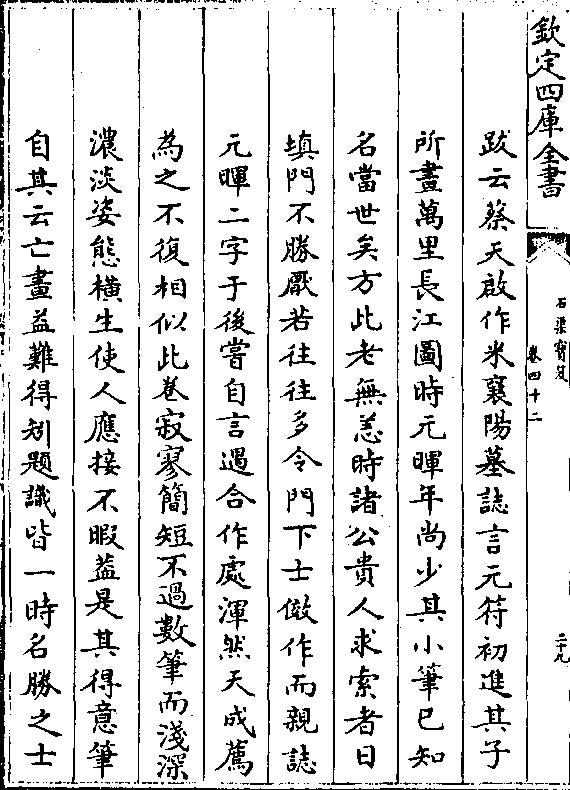 欽定四庫全書
石渠寶笈
卷四十二
二十九
跋云蔡天啟作米襄陽墓誌言元符初進其子
所畫萬里長江圖時元暉年尚少其小筆已知
名當世矣方此老無恙時諸公貴人求索者日
填門不勝厭苦往往多令門下士倣作而親誌
元暉二字于後嘗自言遇合作處渾然天成薦
為之不復相似此卷寂寥簡短不過數筆而淺深
濃淡姿態橫生使人應接不暇葢是其得意筆
自其云亡畫益難得矧題識皆一時名勝之士